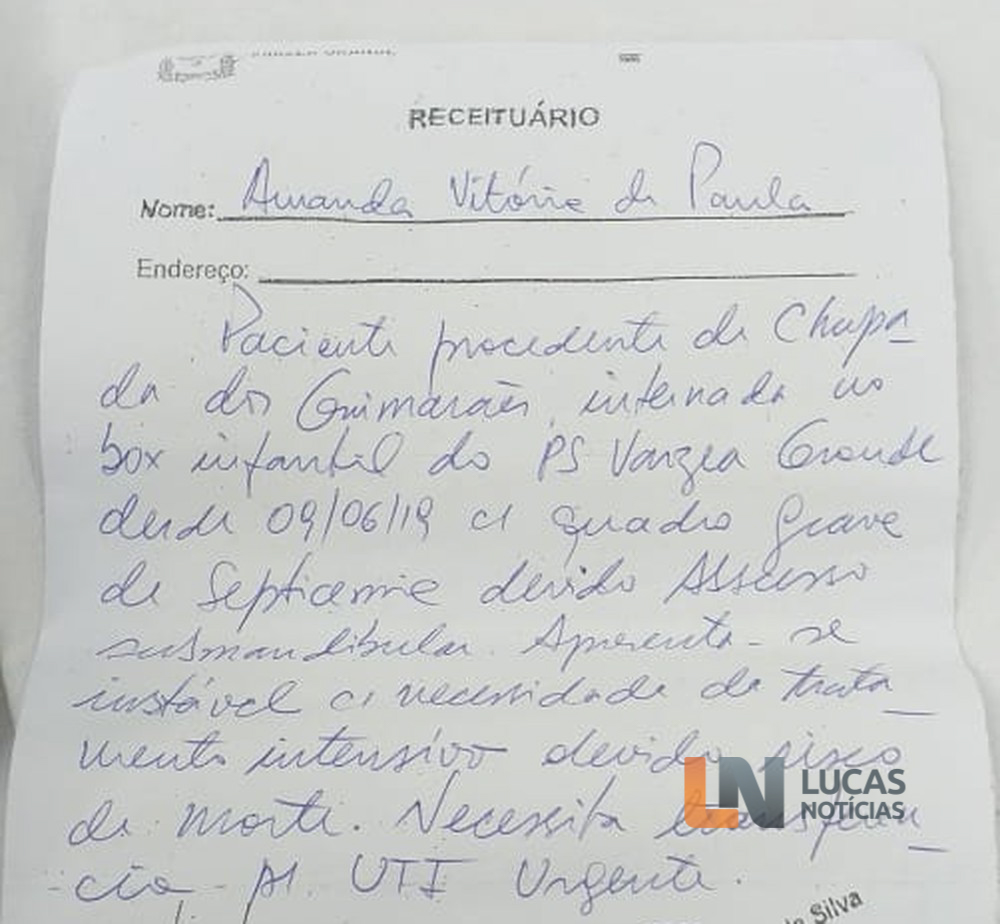 RECEITUÁRIO
Nome: Amanda Vitória de Paula
Endereço:
Paciente procedente de Chapa_
da dos Guimarães, internada no
box infantil do PS Varzea Grande
desde 09/06/19 c/ quadro grave
de Septicemia devido Abscesso
submandibular. Apresenta-se
instável c/ necessidade de trata_
mento intensivo devido risco
de morte. Necessita transferên_
cia p/. UTI Urgente.
LN LUCAS
NOTÍCIAS
Silva